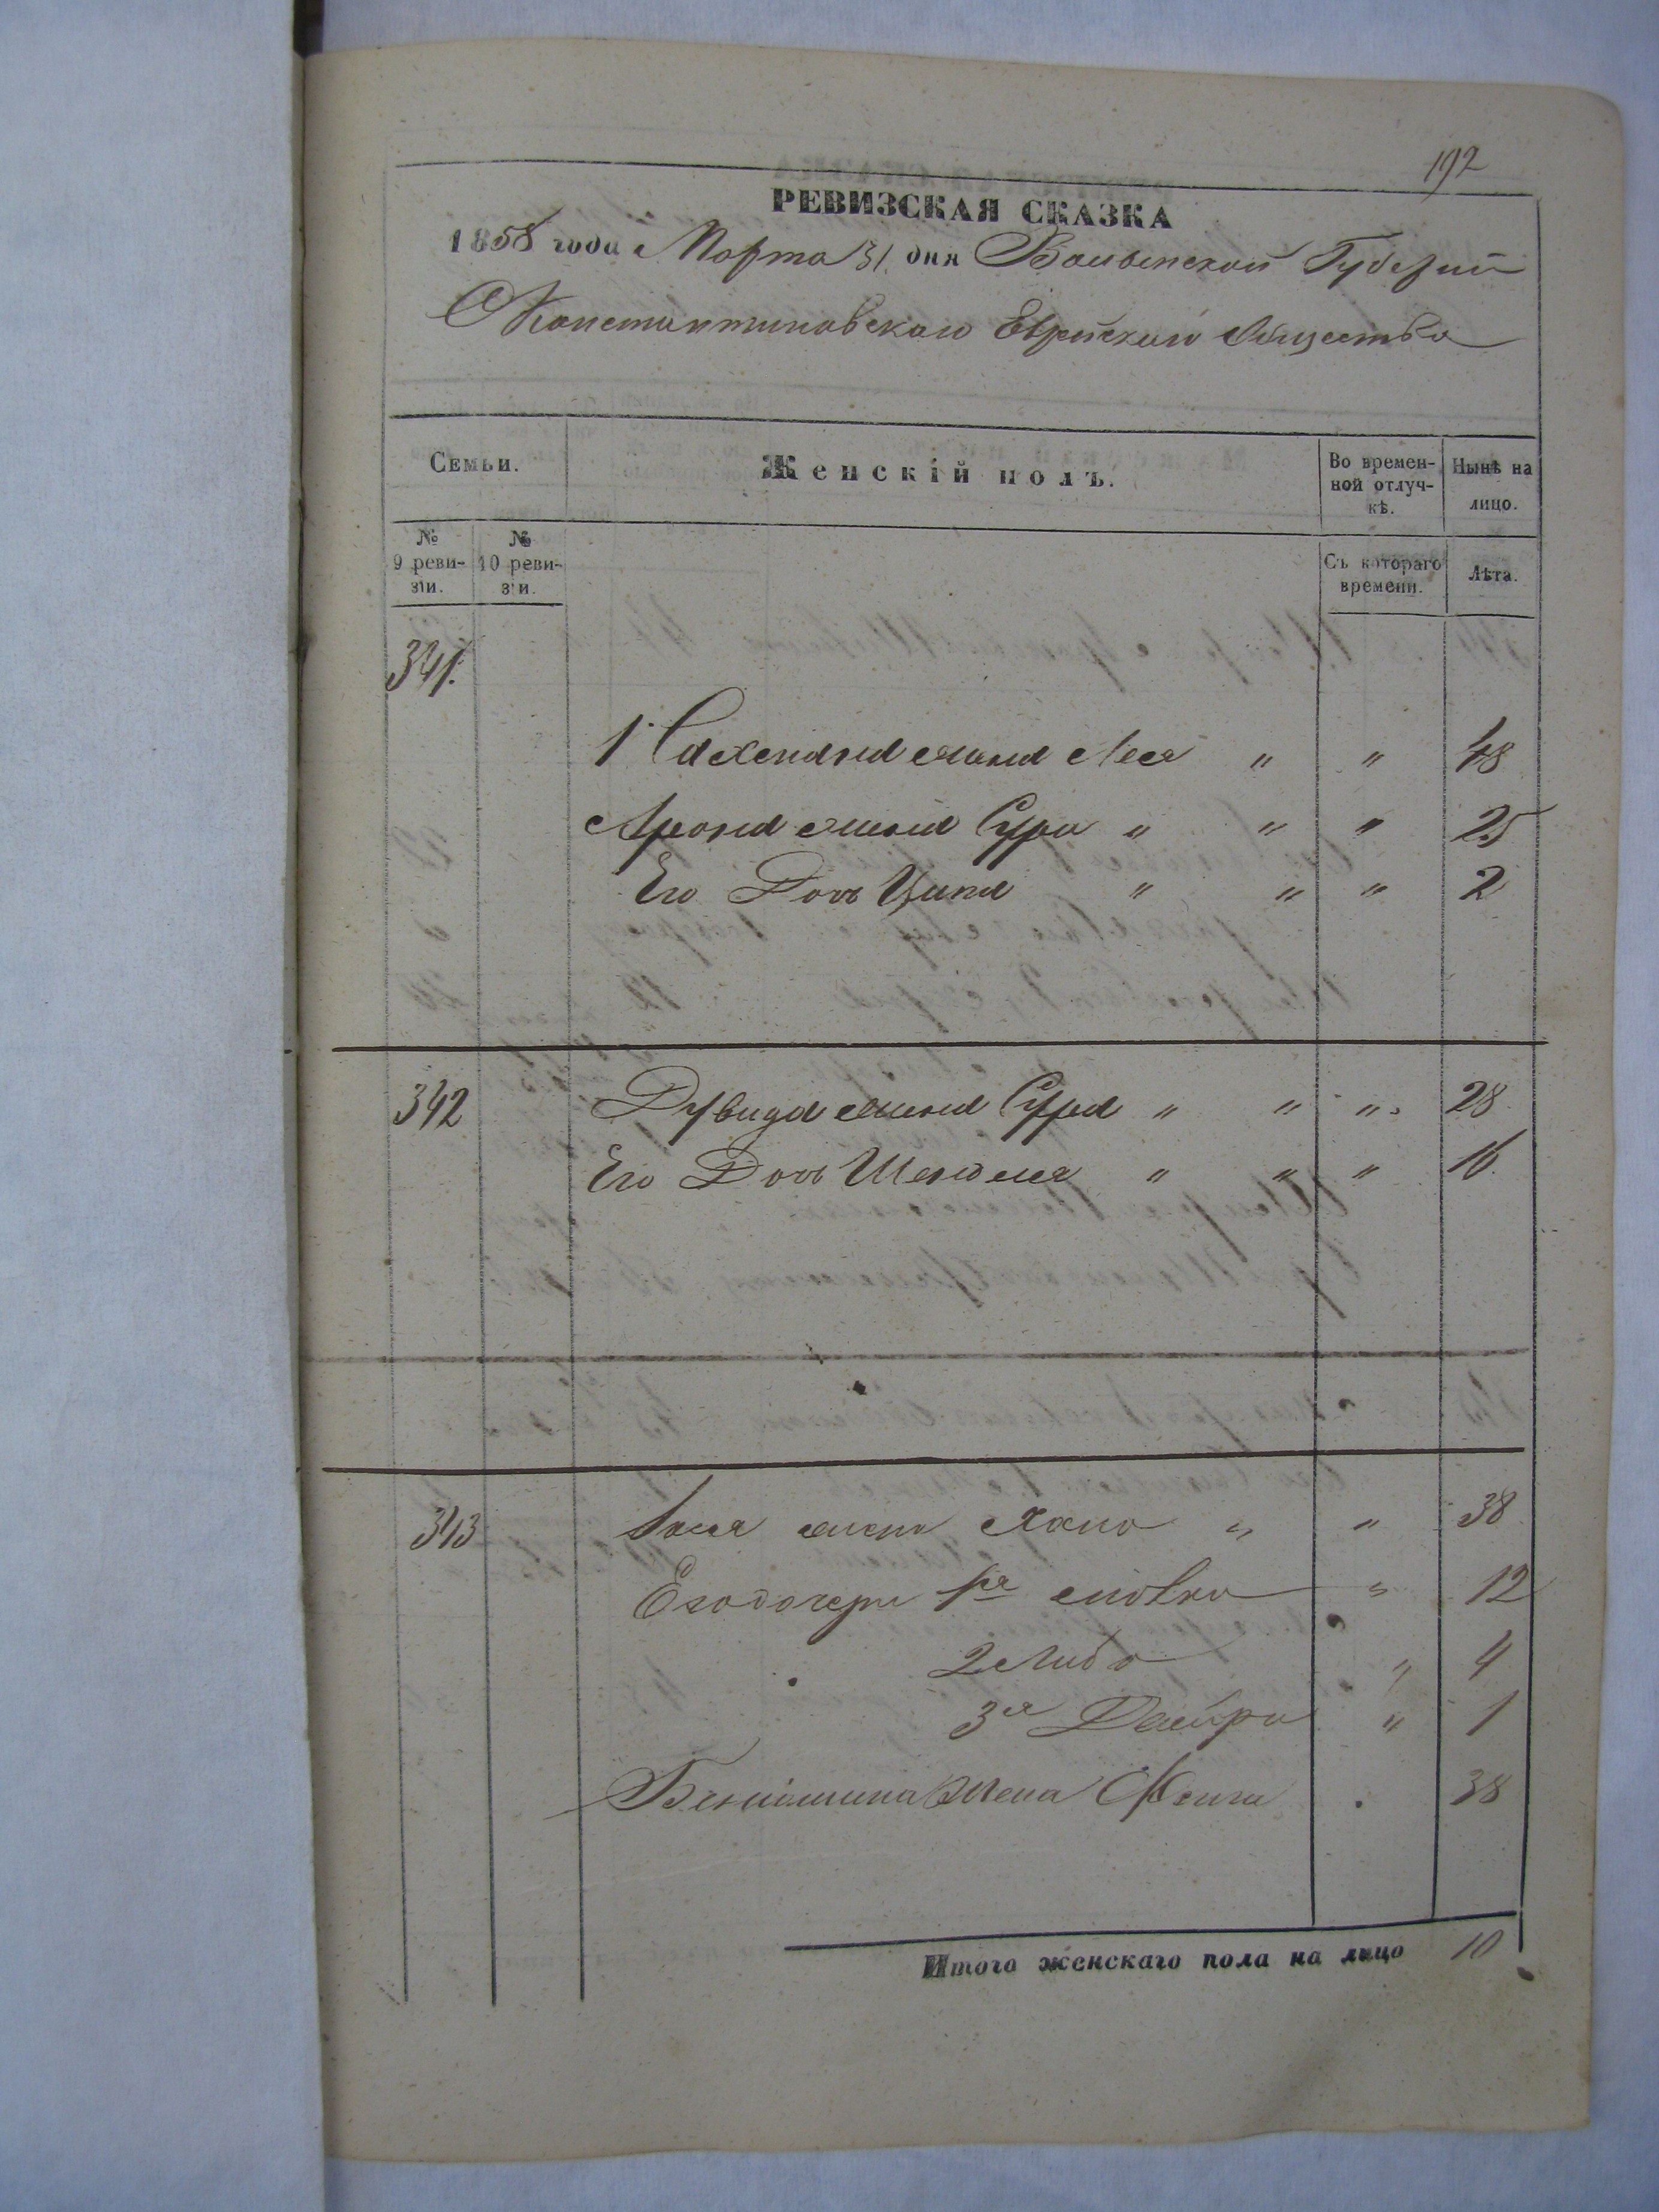 192
РЕВИЗСКАЯ СКАЗКА
1858 года Марта 31 дня Волынской Губерний
Константиновскаго Еврейскаго Общества
Семьи.
Женскій полъ.
Во времен-
ной отлуч-
кѣ.
Нынѣ на
лицо.
№
9 реви-
зіи.
№
10 реви-
зіи.
Съ котораго
времени.
Лѣта.
341.
1 жена Лея " " 48
Арона жена Сура " " " 25
Его Дочь Ципа " " " 2
342 Дувида жена Сура " " " 28
Его Дочь Шейндля " " " 16
343 жена Хана " " 38
Его дочери 1я " 12
2 Либа " 4
3я Двейра " 1
Бениомина Жена 38
Итого женскаго пола на лицо 10